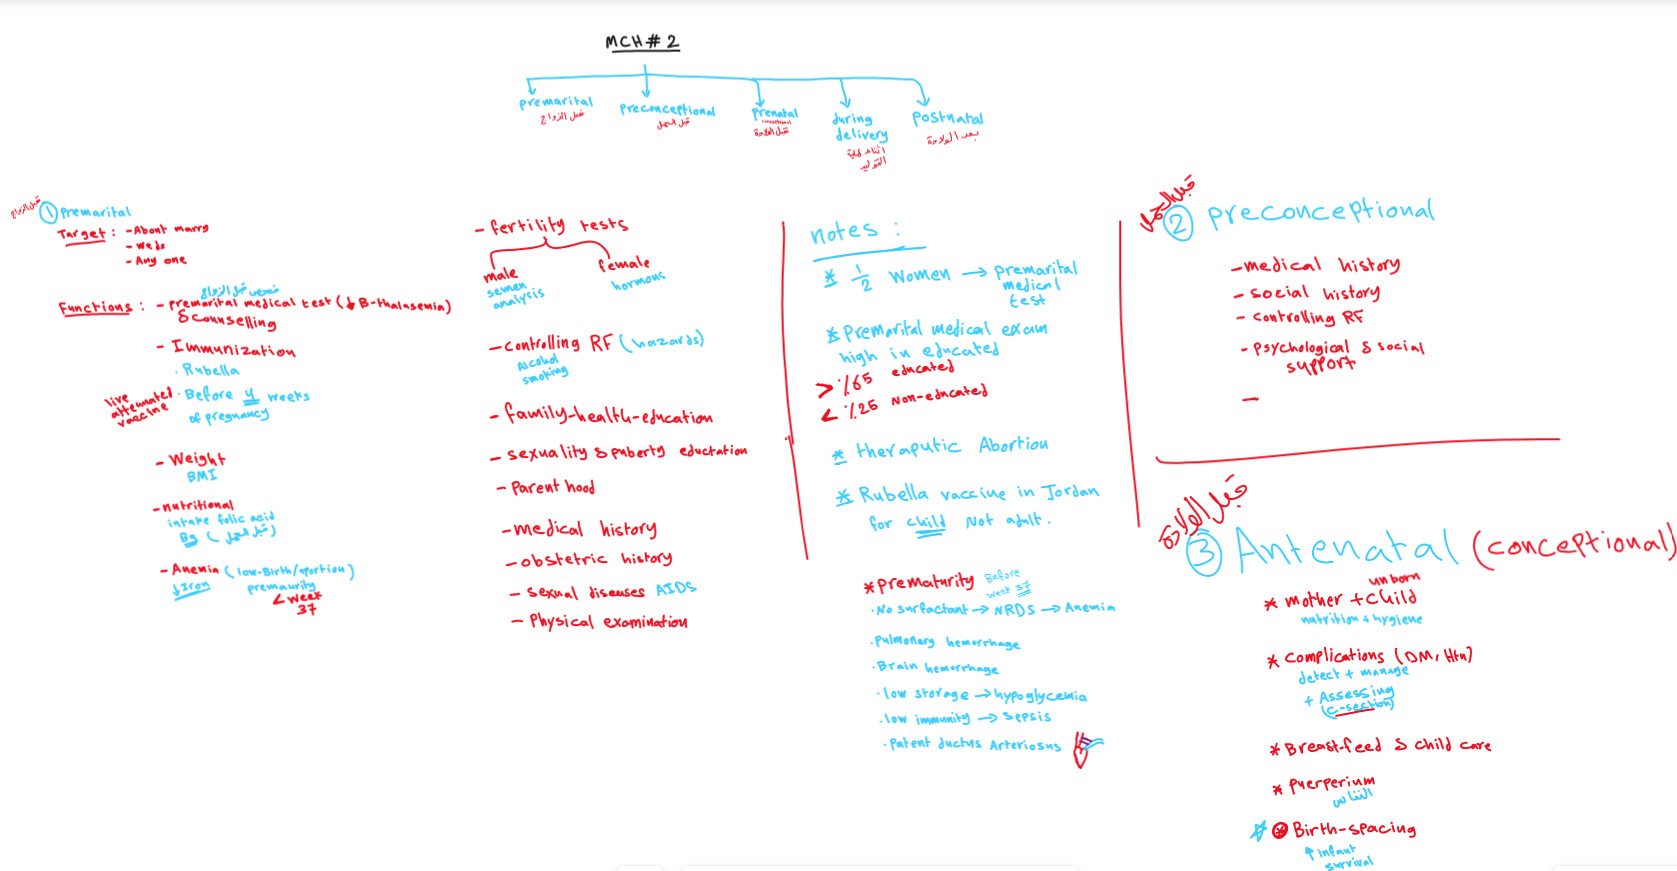 MCH# 2
premarital
قبل الزواج
preconceptional
قبل الحمل
Prenatal
قبل الولادة
during
delivery
اثناء عملية
التوليد
Postnatal
بعد الولادة
قبل الزواج
① Premarital
Target : - About marry
- weds
- Any one
فحص قبل الزواج
Functions : - premarital medical test (↓ B-thalasemia)
& counselling
- Immunization
. Rubella
live
attenuated
vaccine
. Before 4 weeks
of pregnancy
- Weight
BMI
- nutritional
intake folic acid
B9 (قبل الحمل)
- Anemia (low-Birth/aportion)
↓Iron
premaurity
< week
37
- fertility tests
male
semen
analysis
female
hormous
- controlling RF (hazards)
Alcohol
smoking
- family-health-education
- sexuality & puberty eductation
- Parent hood
- medical history
- obstetric history
- sexual diseases AIDS
- Physical examination
notes :
* 1/2 Women → premarital
medical
test
* Premarital medical exam
high in educated
> %65 educated
< %25 Non-educated
* theraputic Abortion
* Rubella vaccine in Jordan
for child Not adult.
* prematurity Before
week 37
. No surfactant → NRDS → Anemia
. Pulmonary hemorrhage
. Brain hemorrhage
. low storage → hypoglycemia
. low immunity → sepsis
. Patent ductus Arteriosus
قبل الحمل
② preconceptional
- medical history
- social history
- controlling RF
- psychological & social
support
-
قبل الولادة
③ Antenatal (conceptional)
unborn
* mother + child
nutrition + hygiene
* complications (DM, Htn)
detect + manage
+ Assessing
(c-section)
* Breast-feed & child care
* puerperium
النفاس
* Birth-spacing
↑ infant
survival